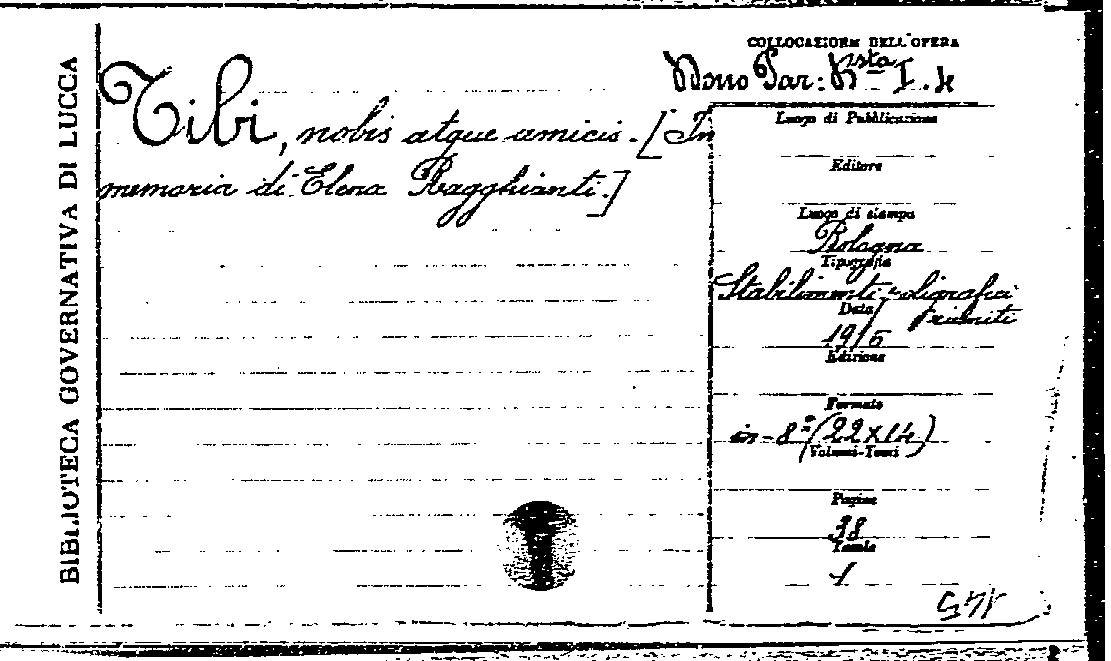 BIBLIOTECA GOVERNATIVA DI LUCCA
Tibi, nobis atque amicis. [In
memoria di Elena Ragghianti.]
COLLOCAZIONE DELL'OPERA
Luogo di Pubblicazione
Editore
Luogo di stampa
Bologna
Tipografia
Stabilimenti poligrafici
riuniti
Data
Edizione
Formato
in-8° (22x14)
Volumi-Tomi
Pagine
38
Tavole
1